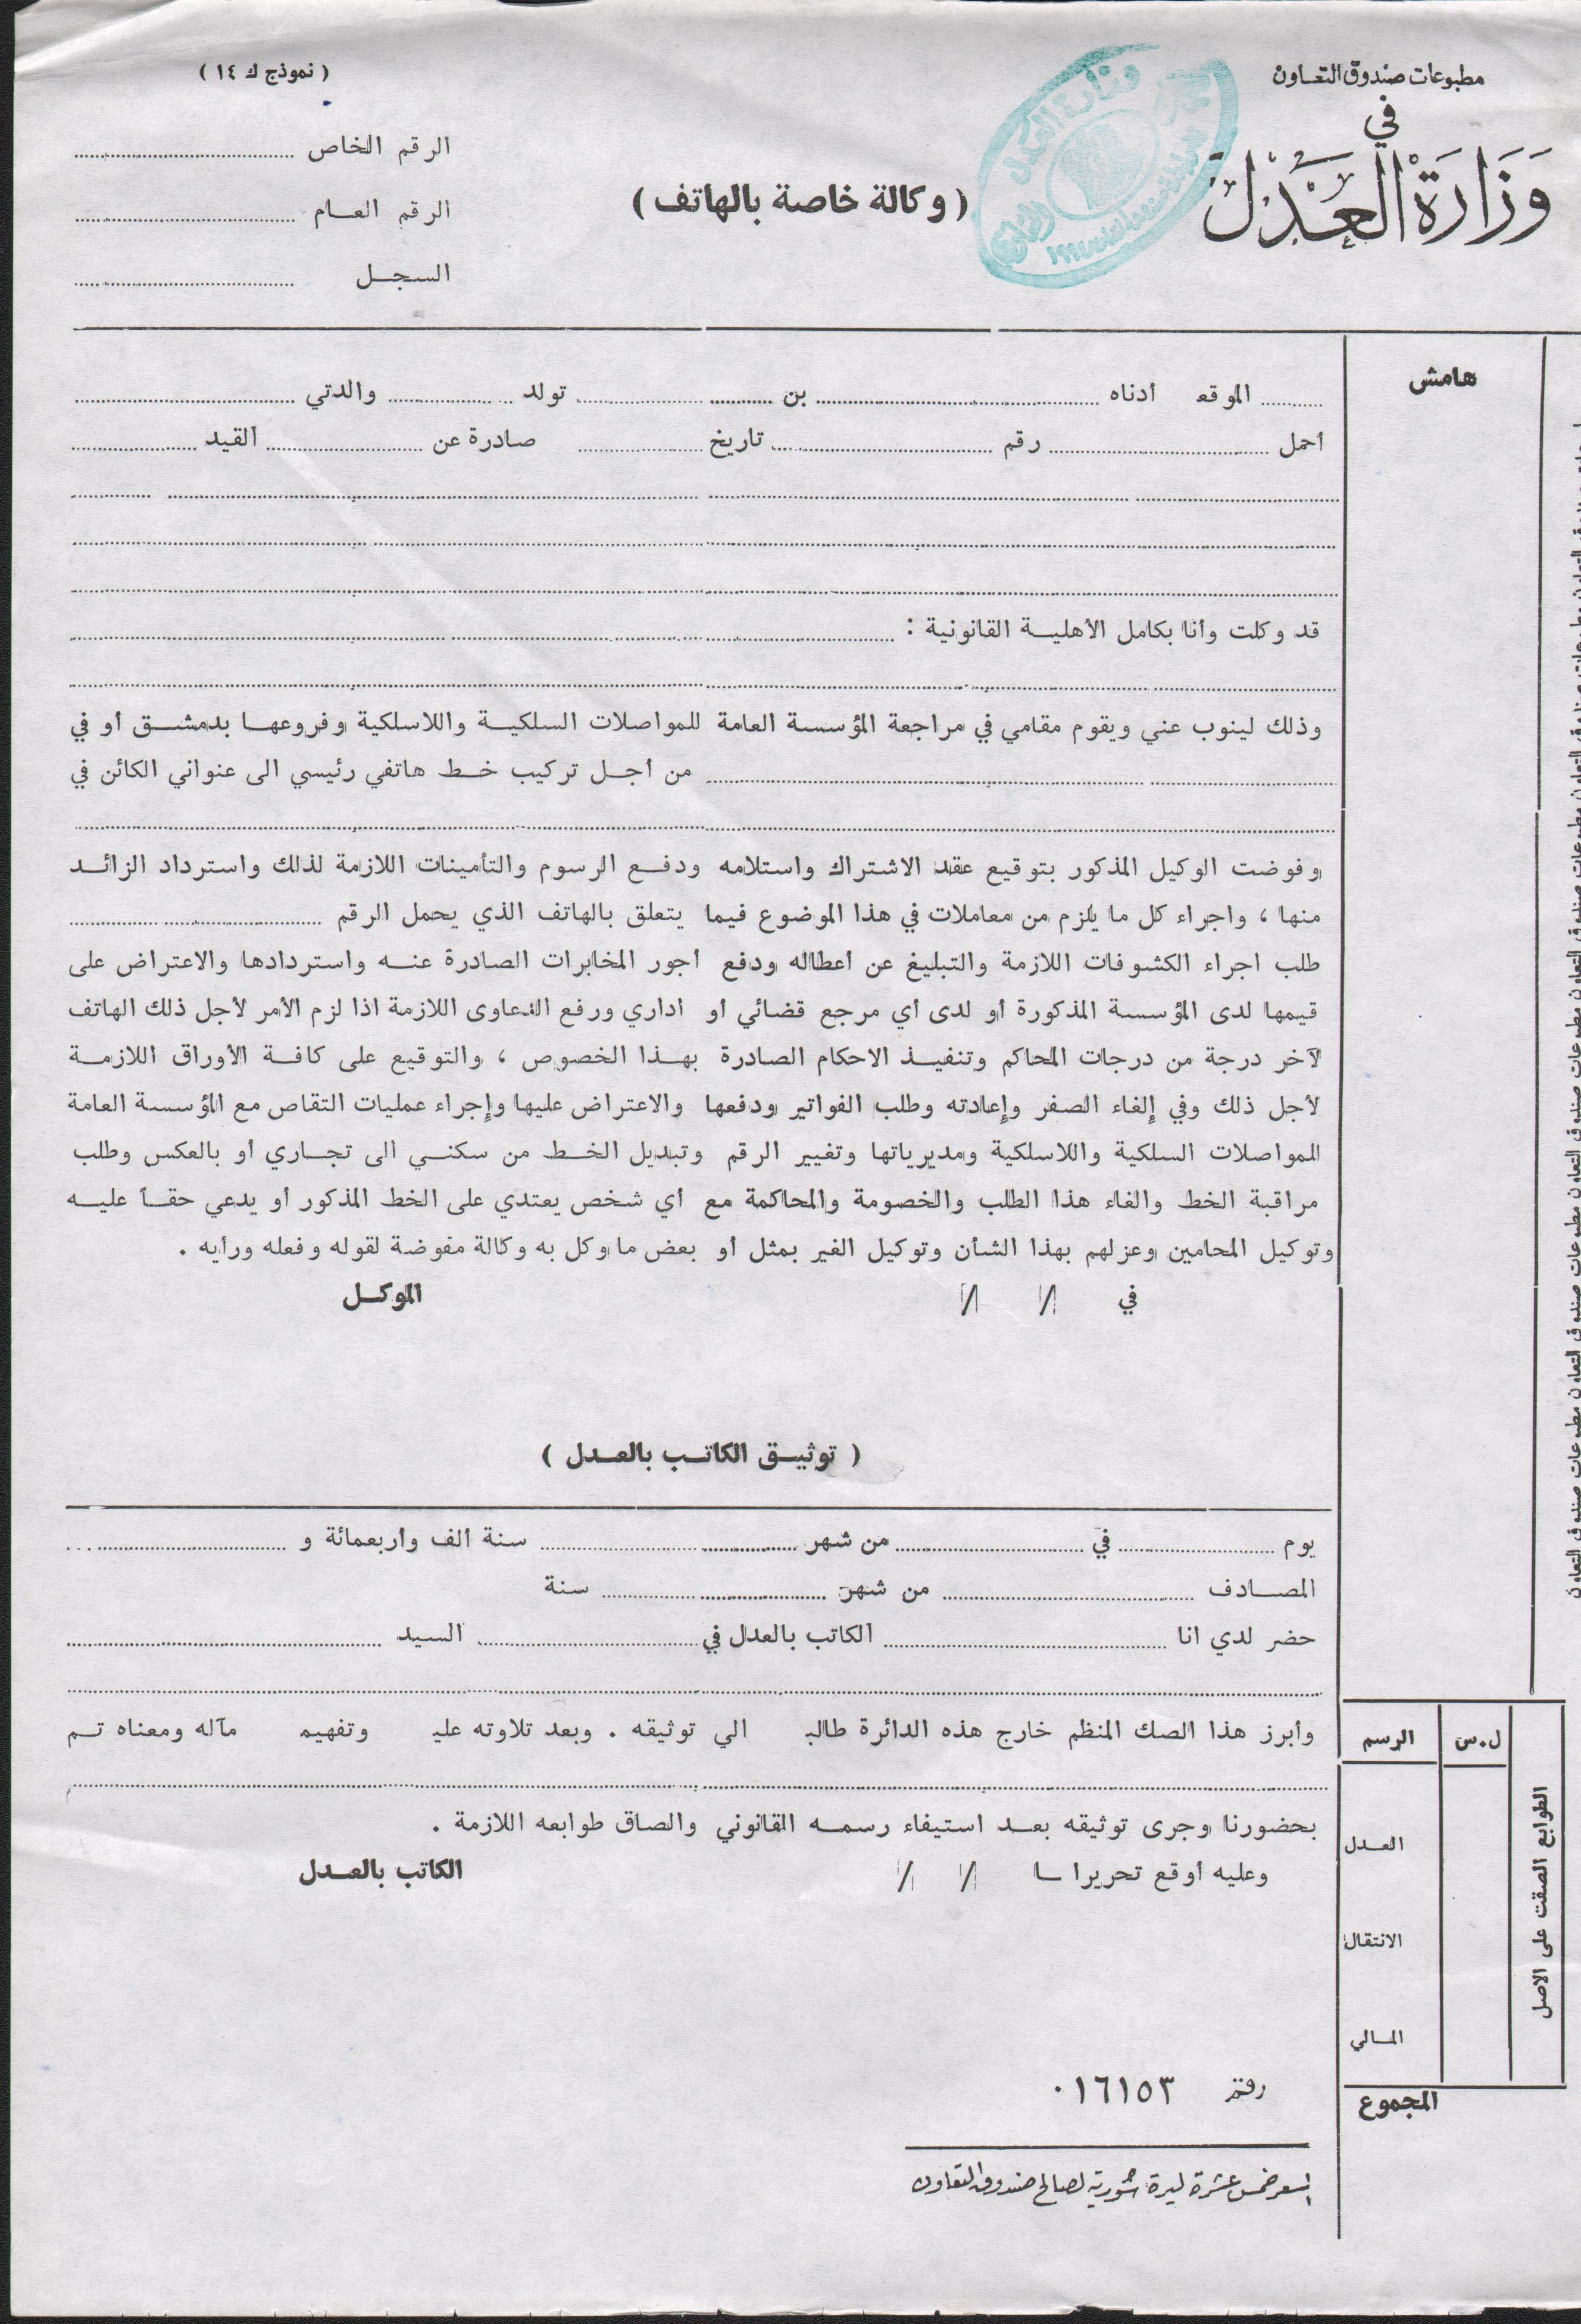 مطبوعات صندوق التعاون
في
وَزَارَةُ العَدْل
( نموذج ك ١٤ )
( وكالة خاصة بالهاتف )
الرقم الخاص
الرقم العام
السجل
وزارة العدل
هامش
الموقع أدناه بن تولد والدتي
أحمل رقم تاريخ صادرة عن القيد
قد وكلت وأنا بكامل الأهلية القانونية :
وذلك لينوب عني ويقوم مقامي في مراجعة المؤسسة العامة للمواصلات السلكية واللاسلكية وفروعها بدمشق أو في
من أجل تركيب خط هاتفي رئيسي الى عنواني الكائن في
وفوضت الوكيل المذكور بتوقيع عقد الاشتراك واستلامه ودفع الرسوم والتأمينات اللازمة لذلك واسترداد الزائد
منها ، واجراء كل ما يلزم من معاملات في هذا الموضوع فيما يتعلق بالهاتف الذي يحمل الرقم
طلب اجراء الكشوفات اللازمة والتبليغ عن أعطاله ودفع أجور المخابرات الصادرة عنه واستردادها والاعتراض على
قيمها لدى المؤسسة المذكورة أو لدى أي مرجع قضائي أو اداري ورفع الدعاوى اللازمة اذا لزم الأمر لأجل ذلك الهاتف
لآخر درجة من درجات المحاكم وتنفيذ الاحكام الصادرة بهذا الخصوص ، والتوقيع على كافة الأوراق اللازمة
لأجل ذلك وفي إلغاء الصفر وإعادته وطلب الفواتير ودفعها والاعتراض عليها وإجراء عمليات التقاص مع المؤسسة العامة
للمواصلات السلكية واللاسلكية ومديرياتها وتغيير الرقم وتبديل الخط من سكني الى تجاري أو بالعكس وطلب
مراقبة الخط والغاء هذا الطلب والخصومة والمحاكمة مع أي شخص يعتدي على الخط المذكور أو يدعي حقاً عليه
وتوكيل المحامين وعزلهم بهذا الشأن وتوكيل الغير بمثل أو بعض ما وكل به وكالة مفوضة لقوله وفعله ورأيه .
في / / الموكل
( توثيق الكاتب بالعدل )
يوم في من شهر سنة الف وأربعمائة و
المصادف من شهر سنة
حضر لدي انا الكاتب بالعدل في السيد
وأبرز هذا الصك المنظم خارج هذه الدائرة طالب الي توثيقه . وبعد تلاوته علي وتفهيم مآله ومعناه تم
بحضورنا وجرى توثيقه بعد استيفاء رسمه القانوني والصاق طوابعه اللازمة .
وعليه أوقع تحريرا / / الكاتب بالعدل
الرسم ل.س
العدل
الانتقال
المالي
المجموع
الطوابع الصقت على الاصل
رقم ٠١٦١٥٣
السعر خمس عشرة ليرة سورية لصالح صندوق التعاون
مطبوعات صندوق التعاون مطبوعات صندوق التعاون مطبوعات صندوق التعاون مطبوعات صندوق التعاون